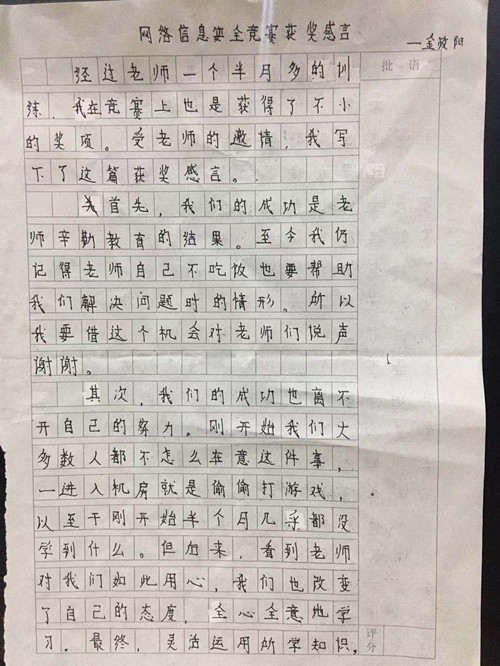 网络信息安全竞赛获奖感言
——金
阳
批语
经过老师一个半月多的训
练，我在竞赛上也是获得了不小
的奖项。受老师的邀情，我写
下了这篇获奖感言。
首先，我们的成功是老
师辛勤教育的结果。至今我仍
记得老师自己不吃饭也要帮助
我们解决问题时的情形。所以
我要借这个机会对老师们说声
谢谢。
其次，我们的成功也离不
开自己的努力。刚开始我们大
多数人都不怎么在意这件事，
一进入机房就是偷偷打游戏，
以至于刚开始半个月几乎都没
学到什么。但后来，看到老师
对我们如此用心，我们也改变
了自己的态度，全心全意地学
习。最终，灵活运用所学知识，
评分